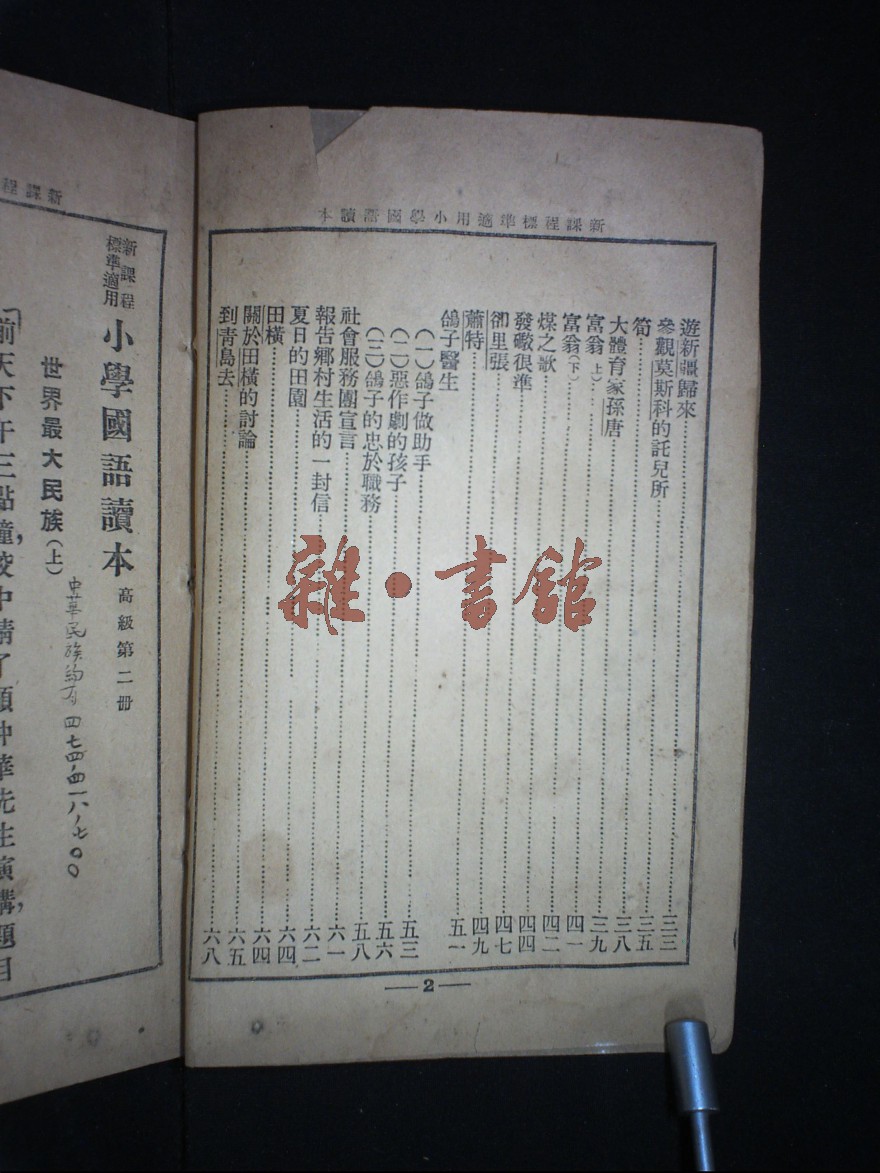 新課程標準適用小學國語讀本
遊新疆歸來……三三
參觀莫斯科的託兒所……三五
筍……三八
大體育家孫唐……三九
富翁(上)……四一
富翁(下)……四二
煤之歌……四四
發礮很準……四七
卻里張……四九
蕭特……五一
鴿子醫生
(一)鴿子做助手……五三
(二)惡作劇的孩子……五六
(三)鴿子的忠於職務……五八
社會服務團宣言……六一
報告鄉村生活的一封信……六二
夏日的田園……六四
田橫……六四
關於田橫的討論……六五
到青島去……六八
—2—
雜·書館
新課程
新課程標準適用 小學國語讀本 高級第二冊
世界最大民族(上)
中華民族約有四七四四一八七〇〇
前天下午三點鐘,校中請了顧仲華先生演講,題目